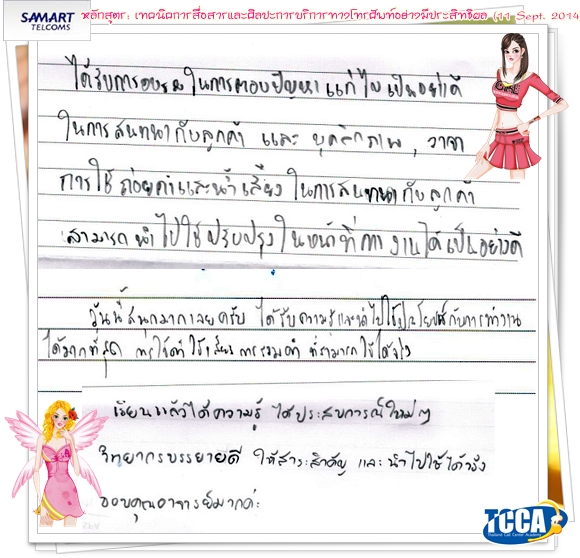 SAMART
TELCOMS
หลักสูตร: เทคนิคการสื่อสารและศิลปะการบริการทางโทรศัพท์อย่างมีประสิทธิผล (11 Sept. 2014
ได้รับการอบรมในการตอบปัญหา แก้ไข เป็นอย่างดี
ในการสนทนากับลูกค้า และ บุคลิกภาพ, วาจา
การใช้ ถ่อยคำและน้ำเสียง ในการสนทนากับลูกค้า
สามารถ นำไปใช้ปรับปรุง ในหน้าที่การงานได้เป็นอย่างดี
วันนี้สนุกมากเลยครับ ได้รับความรู้และนำไปใช้ประโยชน์กับการทำงาน
ได้มากที่สุด การใช้คำ ใช้เสียง ที่สามารถใช้ได้จริง
เรียนแล้วได้ความรู้ ได้ประสบการณ์ใหม่ๆ
วิทยากรบรรยายดี ให้สาระสำคัญ และ นำไปใช้ได้จริง
ขอบคุณอาจารย์มากค่ะ
TCCA
Thailand Call Center Academy